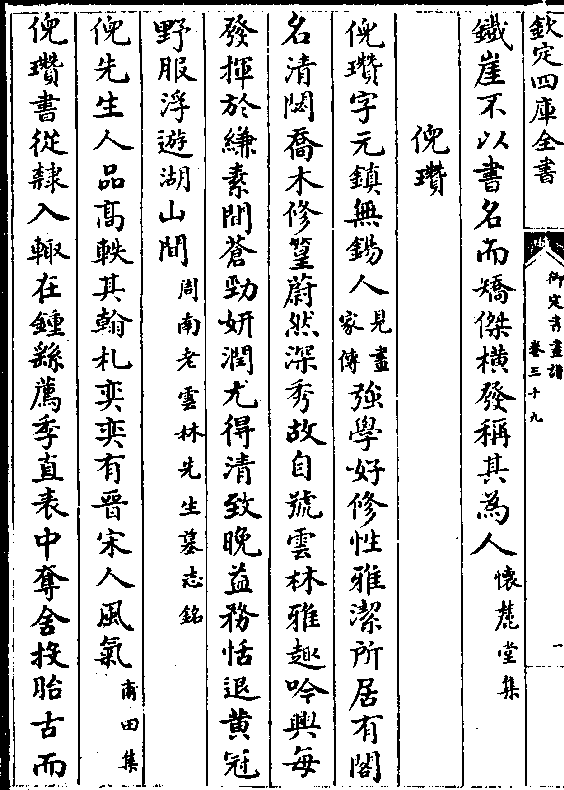 欽定四庫全書
御定書畫譜
卷三十九
一
鐵崖不以書名而矯傑橫發稱其為人懷麓堂集
倪瓚
倪瓚字元鎮無錫人見畫家傳強學好修性雅潔所居有閣
名清閟喬木修篁蔚然深秀故自號雲林雅趣吟興每
發揮於縑素間蒼勁妍潤尤得清致晚益務恬退黃冠
野服浮遊湖山間周南老雲林先生墓志銘
倪先生人品髙軼其翰札奕奕有晉宋人風氣甫田集
倪瓚書從隸入輙在鍾繇薦季直表中奪舍投胎古而